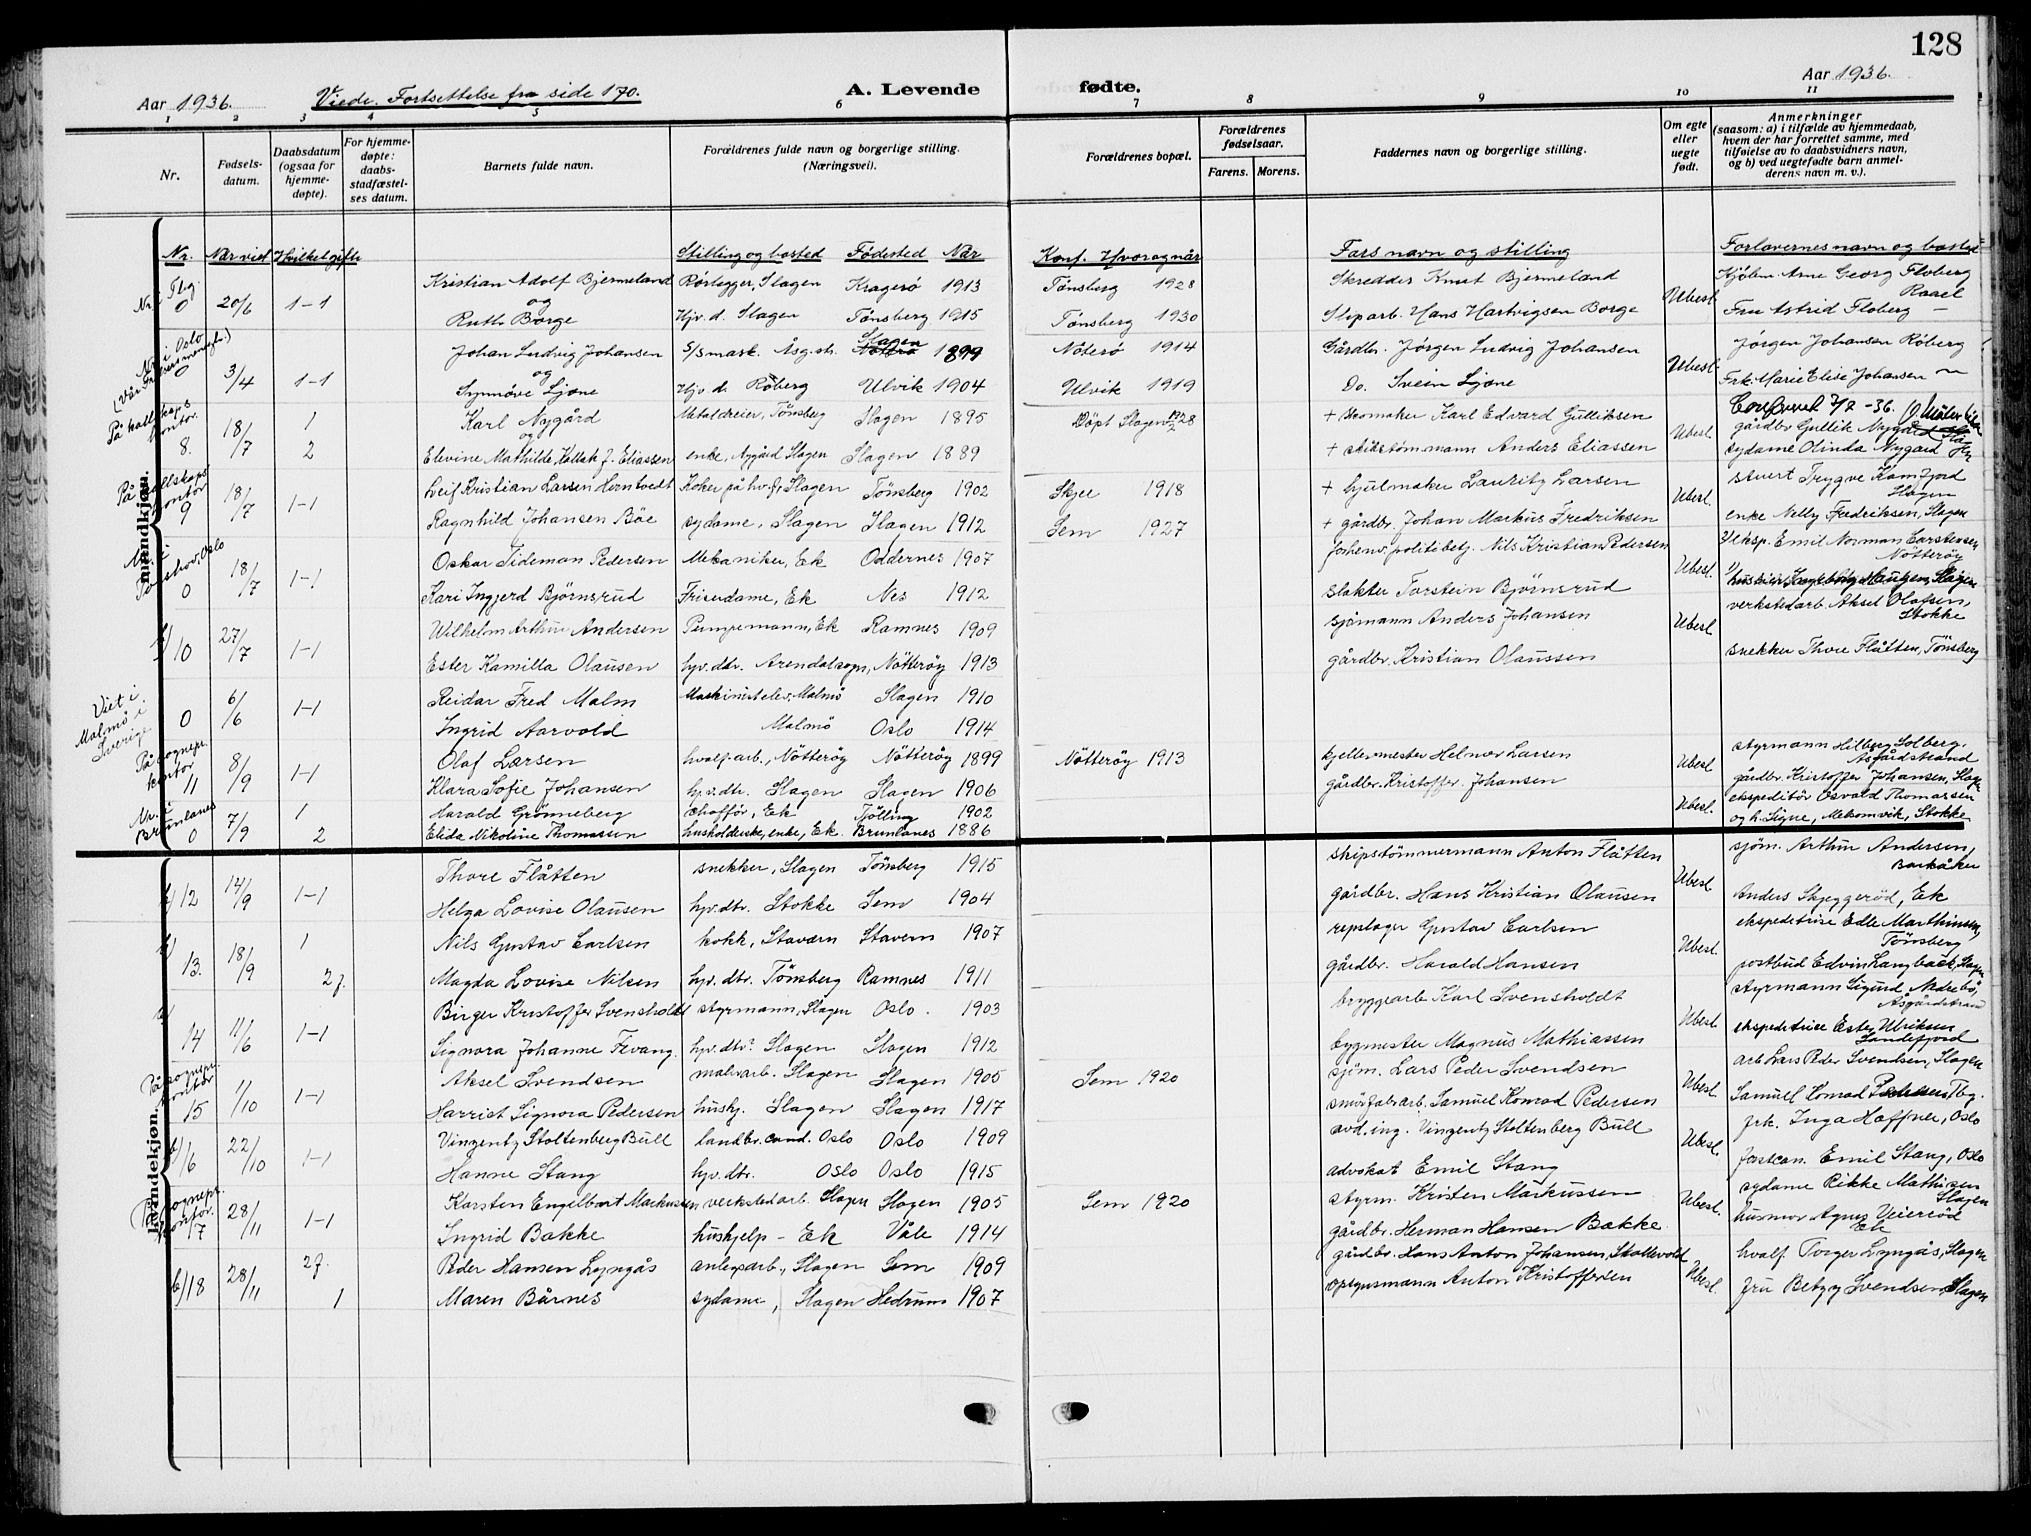 128
Aar 1936. Viede. Fortsettelse fra side 170. A. Levende fødte. Aar 1936.
1 2 3 4 5 6 7 8 9 10 11
Nr.
Fødsels-datum.
Daabsdatum (ogsaa for hjemme-døpte).
For hjemme-døpte: daabs-stadfæstel-ses datum.
Barnets fulde navn.
Forældrenes fulde navn og borgerlige stilling. (Næringsvei).
Forældrenes bopæl.
Forældrenes fødselsaar.
Farens. Morens.
Faddernes navn og borgerlige stilling.
Om egte eller uegte født.
Anmerkninger (saasom: a) i tilfælde av hjemmedaab, hvem der har forrettet samme, med tilføielse av to daabsvidners navn, og b) ved uegtefødte barn anmel-derens navn m. v.).
mandkjøn.
kvindekjøn.
Nr. Når viet Hvilket gifte Stilling og bosted Fødested Når Konf. Hvor og når Fars navn og stilling Forlovernes navn og bosted
Kristian Adolf Bjermeland Rørlegger, Slagen Kragerø 1913 Tønsberg 1928 Skredder Knut Bjermeland Kjøbm. Arne Georg Floberg
0 20/6 1-1 og Ubesl. Raael
Ruth Borge Hjv. d. Slagen Tønsberg 1915 Tønsberg 1930 Sliparb. Hans Hartvigsen Borge Fru Astrid Floberg —
Johan Ludvig Johansen S/smask. Åsg.str. Slagen 1899 Nøterø 1914 Gårdbr. Jørgen Ludvig Johansen Jørgen Johansen Røberg
Nr. i Oslo 0 3/4 1-1 og Ubesl.
Synnøve Ljone Hjv. d. Røberg Ulvik 1904 Ulvik 1919 Do. Svein Ljone Frk. Marie Elise Johansen
Karl Nygård Metaldreier, Tønsberg Slagen 1895 Døpt Slagen + skomaker Karl Edvard Gulliksen
På kallskaps kontor. 8. 18/7 1 2 og Ubesl. gårdbr. Gullik Nygård
Elevine Mathilde Eliassen enke, Nygård Slagen Slagen 1889 + skibstømmann Anders Eliassen sydame Olinda Nygård
På kallskaps kontor 9 18/7 1-1 Leif Kristian Larsen Horntvedt Koker på hv.f., Slagen Tønsberg 1902 Skjee 1918 + hjulmaker Lauritz Larsen Ubesl. stuert Trygve Kamfjord Slagen
Ragnhild Johansen Bøe sydame, Slagen Slagen 1912 Sem 1927 + gårdbr. Johan Markus Fredriksen enke Nelly Fredriksen, Slagen
0 18/7 1-1 Oskar Tideman Pedersen Mekaniker, Ek Oddernes 1907 forhenv. politibetj. Nils Kristian Pedersen Ubesl. eksp. Emil Norman Carstensen Nøtterøy
Kari Ingjerd Bjørnsrud Frisørdame, Ek Nes 1912 slakter Torstein Bjørnsrud Ingeborg Haugen, Slagen
10 27/7 1-1 Wilhelm Arthur Andersen Pumpemann, Ek Ramnes 1909 sjømann Anders Johansen Ubesl. verkstedarb. Aksel Olafsen, Stokke
Ester Kamilla Olausen hjv. dtr. Arendalsogn, Nøtterøy 1913 gårdbr. Kristian Olaussen snekker Thore Flåtten, Tønsberg
Viet i Malmø i Sverige 0 6/6 1-1 Reidar Fred Malm Maskinistelev, Malmø Slagen 1910
Ingrid Aarvold Malmø Oslo 1914
På sognepr. kontor 11 8/9 1-1 Olaf Larsen hvalf.arb., Nøtterøy Nøtterøy 1899 Nøtterøy 1913 kjellermester Helmer Larsen Ubesl styrmann Hilberg Solberg, Åsgårdstrand
Klara Sofie Johansen hjv. dtr. Slagen Slagen 1906 gårdbr. Kristoffer Johansen gårdbr. Kristoffer Johansen, Slagen
Nr. i Brunlanes 0 7/9 1 2 Harald Grønneberg chaffør, Ek Tjølling 1902 Ubesl. ekspeditør Osvald Thomassen
Elida Nikoline Thomassen husholderske, enke, Ek. Brunlanes 1886 og h. Signe, Melsomvik, Stokke
12 14/9 1-1 Thore Flåtten snekker, Slagen Tønsberg 1915 skipstømmermann Anton Flåtten Ubesl. sjøm. Arthur Andersen, Barkåker
Helga Lovise Olausen hjv. dtr. Stokke Sem 1904 gårdbr. Hans Kristian Olausen Anders Skjeggerød, Ek
13. 18/9 1 2 f. Nils Gustav Carlsen kokk, Stavern Stavern 1907 repslager Gustav Carlsen Ubesl. ekspeditrise Edle Marthinsen, Tønsberg
Magda Lovise Nilsen hjv. dtr. Tønsberg Ramnes 1911 gårdbr. Harald Hansen postbud Edvin Langbakk, Slagen
14 11/6 1-1 Birger Kristoffer Svensholdt styrmann, Slagen Oslo. 1903 bryggearb Karl Svensholdt Ubesl. styrmann Sigurd Medrebø, Åsgårdstrand
Signora Johanne Fevang. hjv. dtr. Slagen Slagen 1912 bygmester Magnus Mathiassen ekspeditrice Ester Ulriksen Sandefjord
På sognepr. kontor 15 1/10 1-1 Aksel Svendsen malerarb. Slagen Slagen 1905 Sem 1920 sjøm. Lars Peder Svendsen Ubesl. arb. Lars Peder Svendsen, Slagen
Harriet Signora Pedersen hushj. Slagen Slagen 1917 smørfabarb. Samuel Konrad Pedersen Samuel Konrad Pedersen Tbg.
16 22/10 1-1 Vinzentz Stoltenberg Bull landbr. cand. Oslo Oslo 1909 avd. ing. Vinzentz Stoltenberg Bull Ubesl. frk. Inga Haffner, Oslo
Hanne Stang hjv. dtr. Oslo Oslo 1915 advokat Emil Stang forstcan. Emil Stang, Oslo
På sognepr. kontor. 17 28/11 1-1 Karsten Engelbart Markussen verkstedarb. Slagen Slagen 1905 Sem 1920 styrm. Kristen Markussen Ubesl. sydame Rikke Mathisen Slagen
Ingrid Bakke hushjelp - Ek Våle 1914 gårdbr. Herman Hansen Bakke. husmor Agnes Veierød Ek
18 28/11 2 f. 1 Peder Hansen Lyngås anlegsarb., Slagen Sem 1909 gårdbr. Hans Anton Johansen, Skallevold Ubesl. hvalf. Torger Lyngås, Slagen
Maren Bårnes sydame, Slagen Hedrum 1907 opsynsmann Anton Kristoffersen fru Betzy Svendsen, Slagen